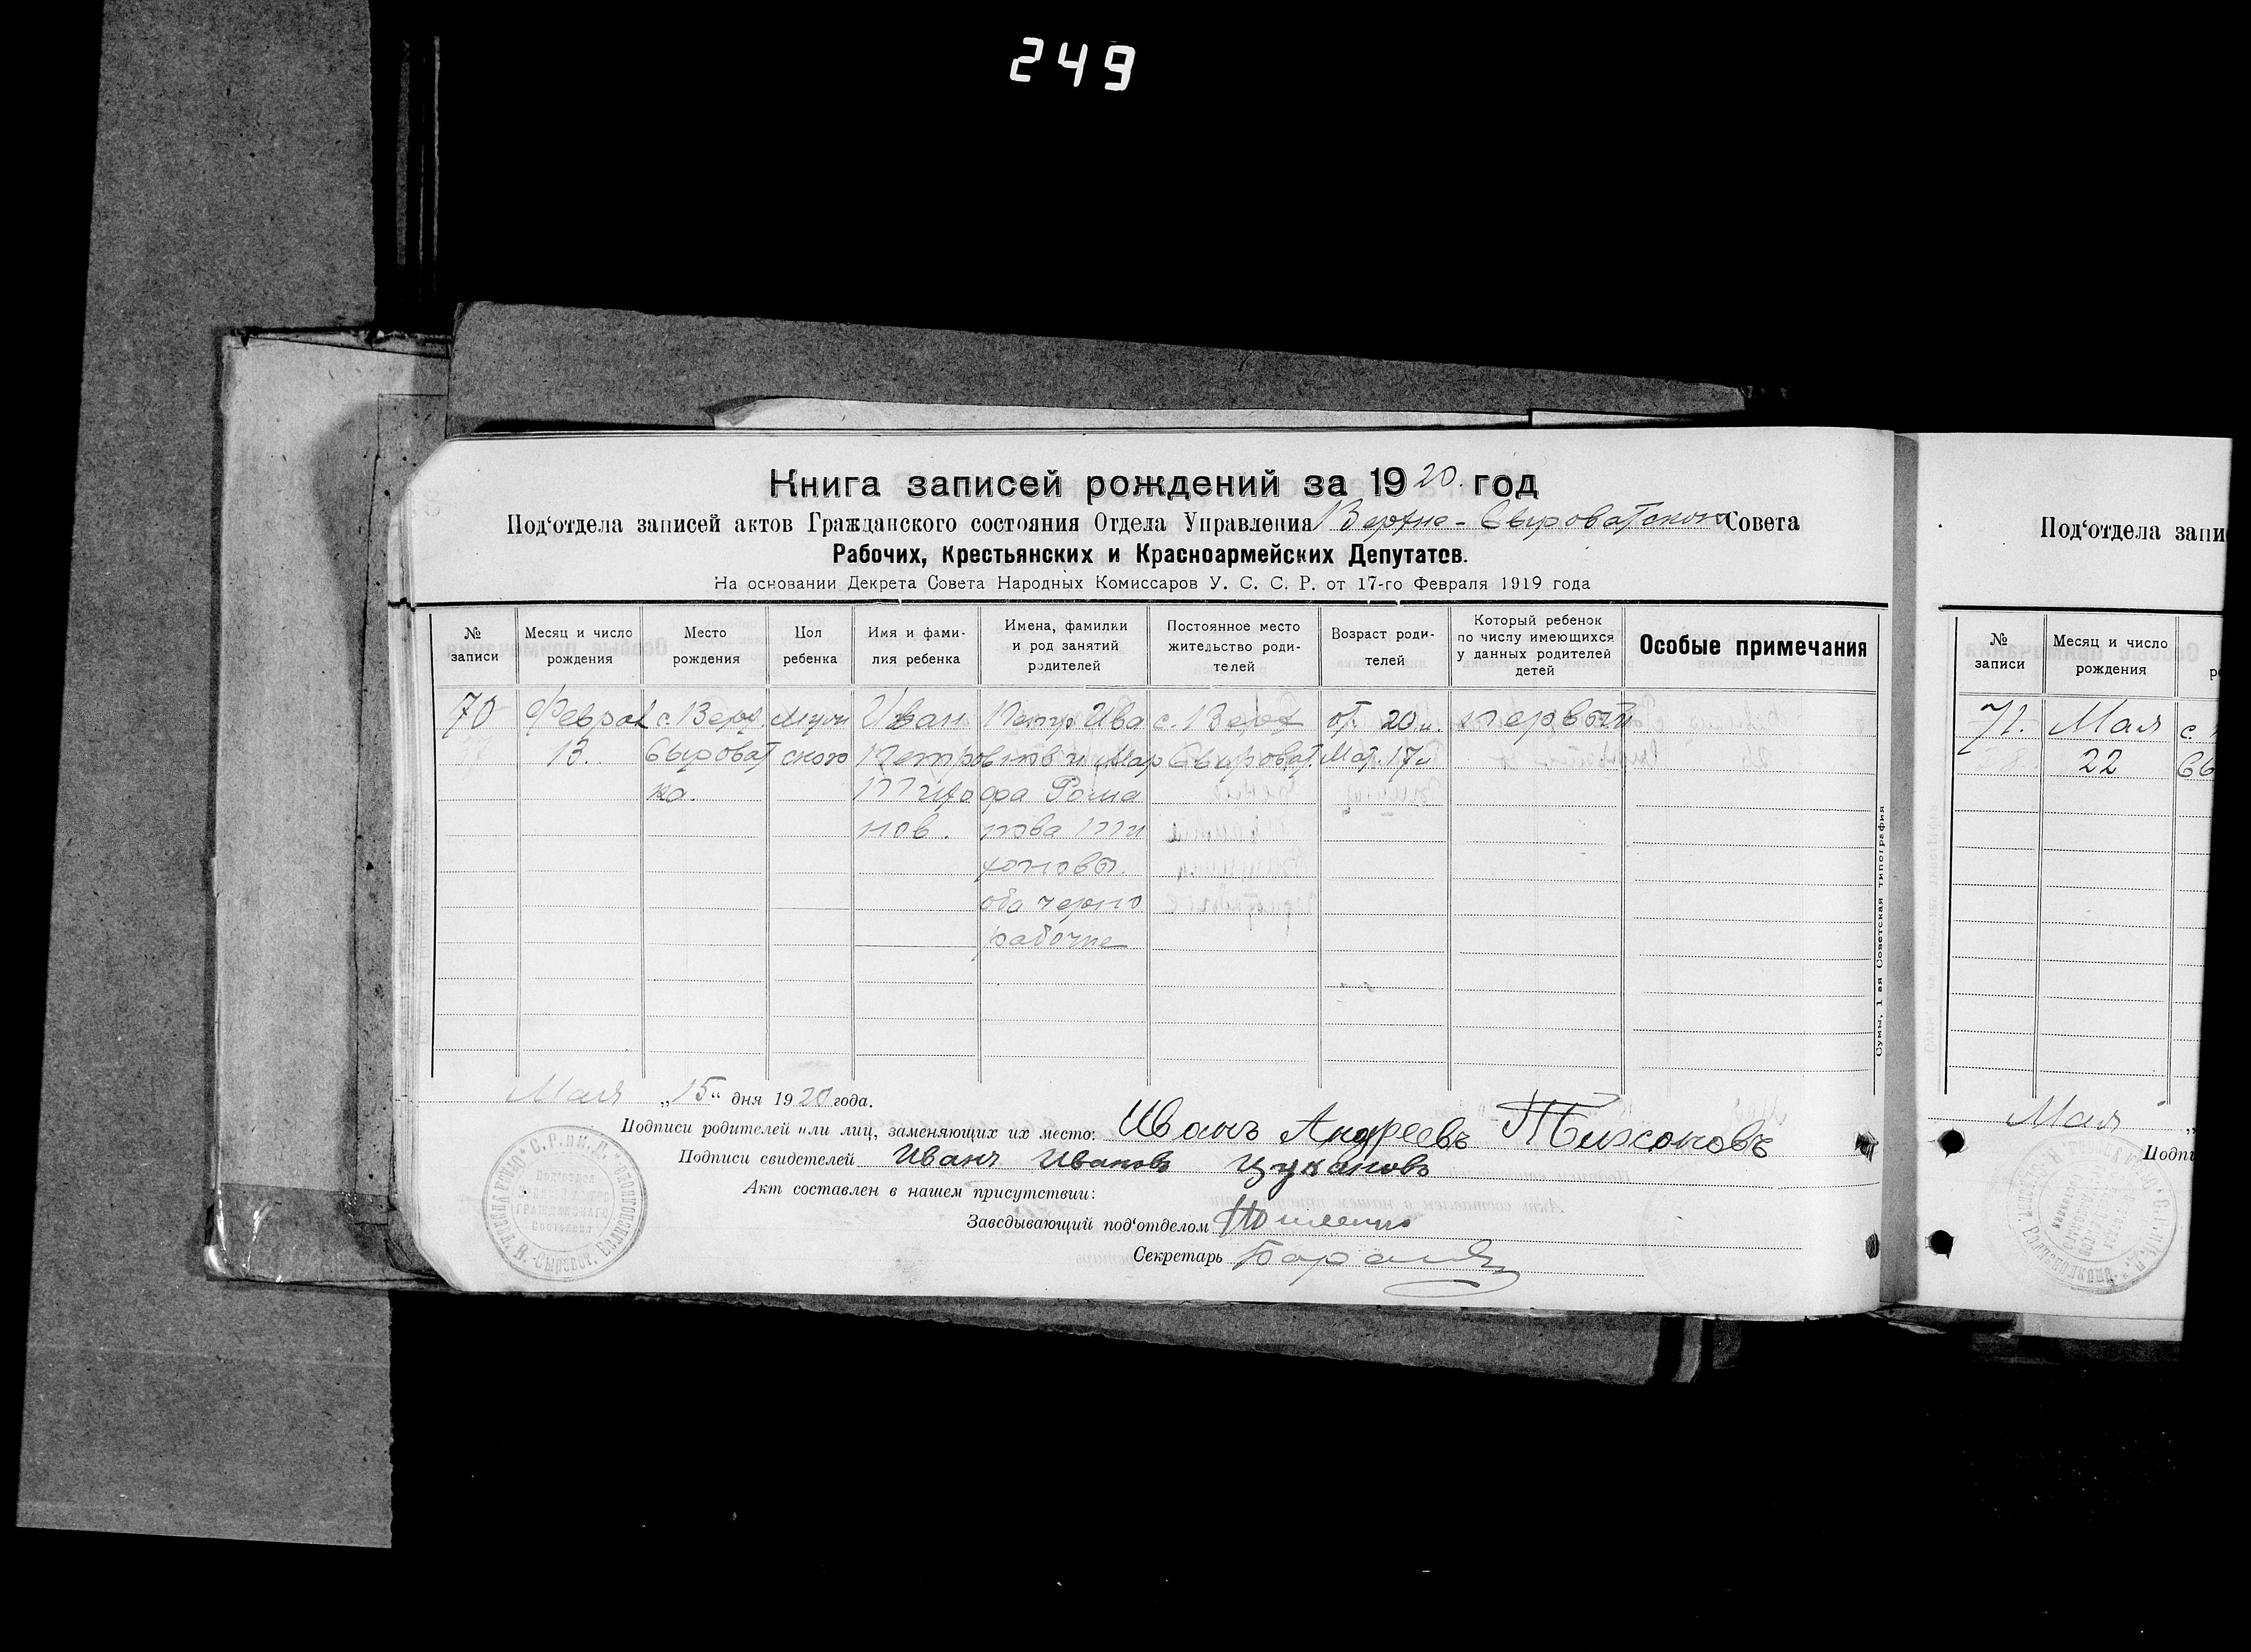 249
Книга записей рождений за 1920. год
Под‘отдела записей актов Гражданского состояния Отдела Управления Верхне-Сыроватского Совета
Рабочих, Крестьянских и Красноармейских Депутатов.
На основании Декрета Совета Народных Комиссаров У. С. С. Р. от 17-го Февраля 1919 года
№ записи
Месяц и число рождения
Место рождения
Пол ребенка
Имя и фамилия ребенка
Имена, фамилии и род занятий родителей
Постоянное место жительство родителей
Возраст родителей
Который ребенок по числу имеющихся у данных родителей детей
Особые примечания
70 Феврал с. Верх. муж Иван Петр Ива с. Верх от. 20 первый
13. Сыроват ского Петров нов и Мар Сыроват. Мат. 17
ка. Тихо фа Рома
нов. нова Ти
хоновы.
оба черно
рабочие
Мая „15“ дня 1920 года.
Подписи родителей или лиц, заменяющих их место: Иванъ Андреевъ Тихоновъ
Подписи свидетелей Иванъ Ивановъ Цукановъ
Акт составлен в нашем присутствии:
Заведывающий под‘отделом
Секретарь
Сумы, 1 ая Советская типография
С.Р.пк.Д.
ГРАЖДАНСКАГО
Состояния
Под‘отдела запи
№ записи
Месяц и число рождения
71. Мая с.
22
Мая